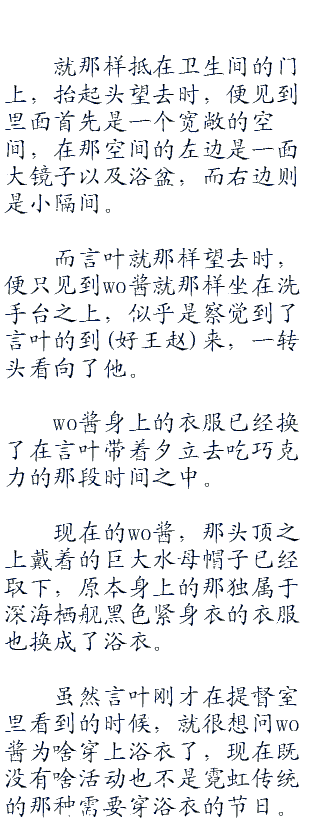 就那样抵在卫生间的门
上，抬起头望去时，便见到
里面首先是一个宽敞的空
间，在那空间的左边是一面
大镜子以及浴盆，而右边则
是小隔间。
而言叶就那样望去时，
便只见到wo酱就那样坐在洗
手台之上，似乎是察觉到了
言叶的到(好王赵)来，一转
头看向了他。
wo酱身上的衣服已经换
了在言叶带着夕立去吃巧克
力的那段时间之中。
现在的wo酱，那头顶之
上戴着的巨大水母帽子已经
取下，原本身上的那独属于
深海栖舰黑色紧身衣的衣服
也换成了浴衣。
虽然言叶刚才在提督室
里看到的时候，就很想问wo
酱为啥穿上浴衣了，现在既
没有啥活动也不是霓虹传统
的那种需要穿浴衣的节日。